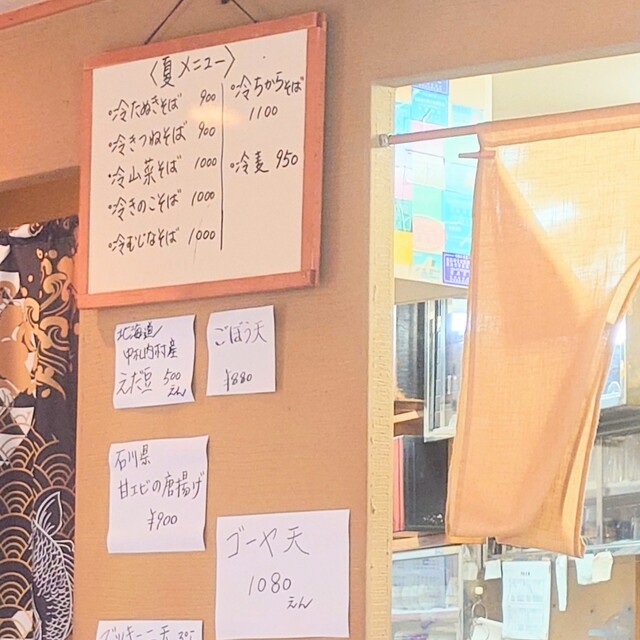 〈夏メニュー〉
・冷たぬきそば 900
・冷きつねそば 900
・冷山菜そば 1000
・冷きのこそば 1000
・冷むじなそば 1000
・冷ちからそば
1100
・冷麦 950
北海道
中札内村産
えだ豆 500
えん
ごぼう天
¥880
石川県
甘エビの唐揚げ
¥900
ゴーヤ天
1080
えん
ズッキーニ天